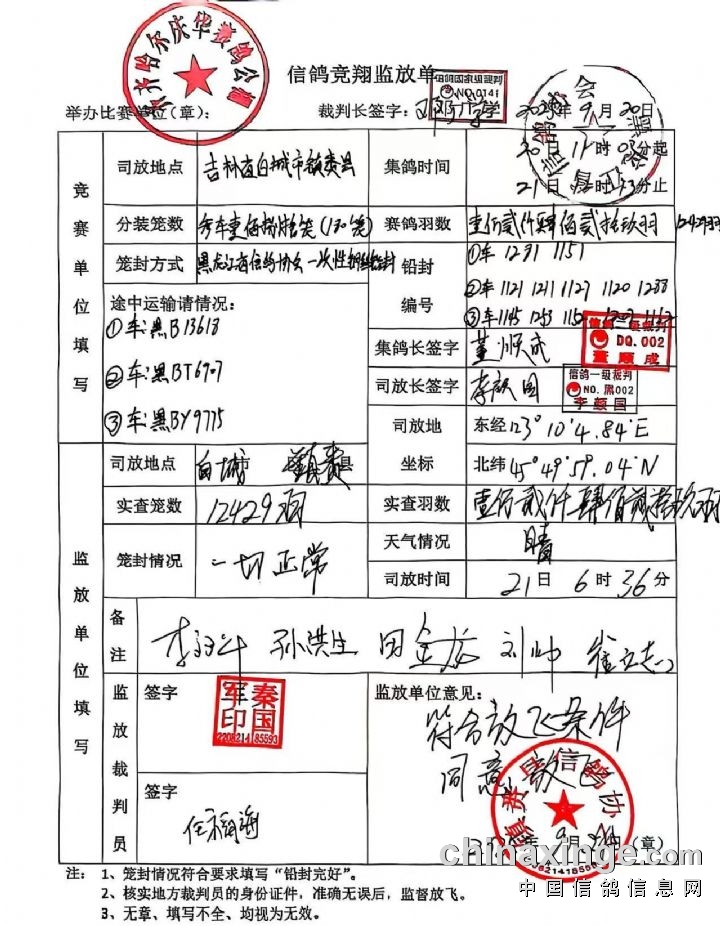 信鸽竞翔监放单
举办比赛单位(章):
裁判长签字:
NO.0141
2025年9月20日
司放地点 吉林省白城市镇赉县
集鸽时间
竞赛单位填写
分装笼数
赛鸽羽数 壹佰贰仟肆佰贰拾玖羽
笼封方式 黑龙江省信鸽协会一次性
铅封编号
①车 1231 1151
②车 1121 1211 1127 1120 1288
③车 1145 1253
途中运输请情况:
①车:黑B13618
②车:黑BT6707
③车:黑BY9775
集鸽长签字 董顺成
信鸽一级裁判
DQ.002
董顺成
司放长签字 李颜国
信鸽一级裁判
NO.黑002
李颜国
司放地坐标
东经 123°10′4.84″E
北纬 45°49′59.04″N
监放单位填写
司放地点 白城 镇赉县
实查笼数 12429羽
实查羽数 壹佰贰仟肆佰贰拾玖羽
笼封情况 一切正常
天气情况 晴
司放时间 21日6时36分
备注
孙洪生 田金龙 刘帅 崔立志
监放裁判员
签字
秦国军印
签字
监放单位意见:
符合放飞条件
同意放飞
镇赉县信鸽协
(章)
注: 1、笼封情况符合要求填写“铅封完好”。
2、核实地方裁判员的身份证件,准确无误后,监督放飞。
3、无章、填写不全、均视为无效。
chinaxinge.com
中国信鸽信息网